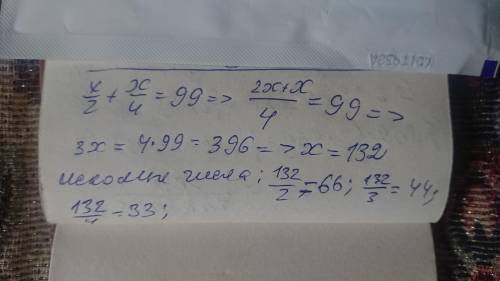 x/2 + x/4 = 99 => (2x+x)/4 = 99 =>
3x = 4·99 = 396 => x = 132
искомые числа; 132/2 = 66; 132/3 = 44;
132/4 = 33;